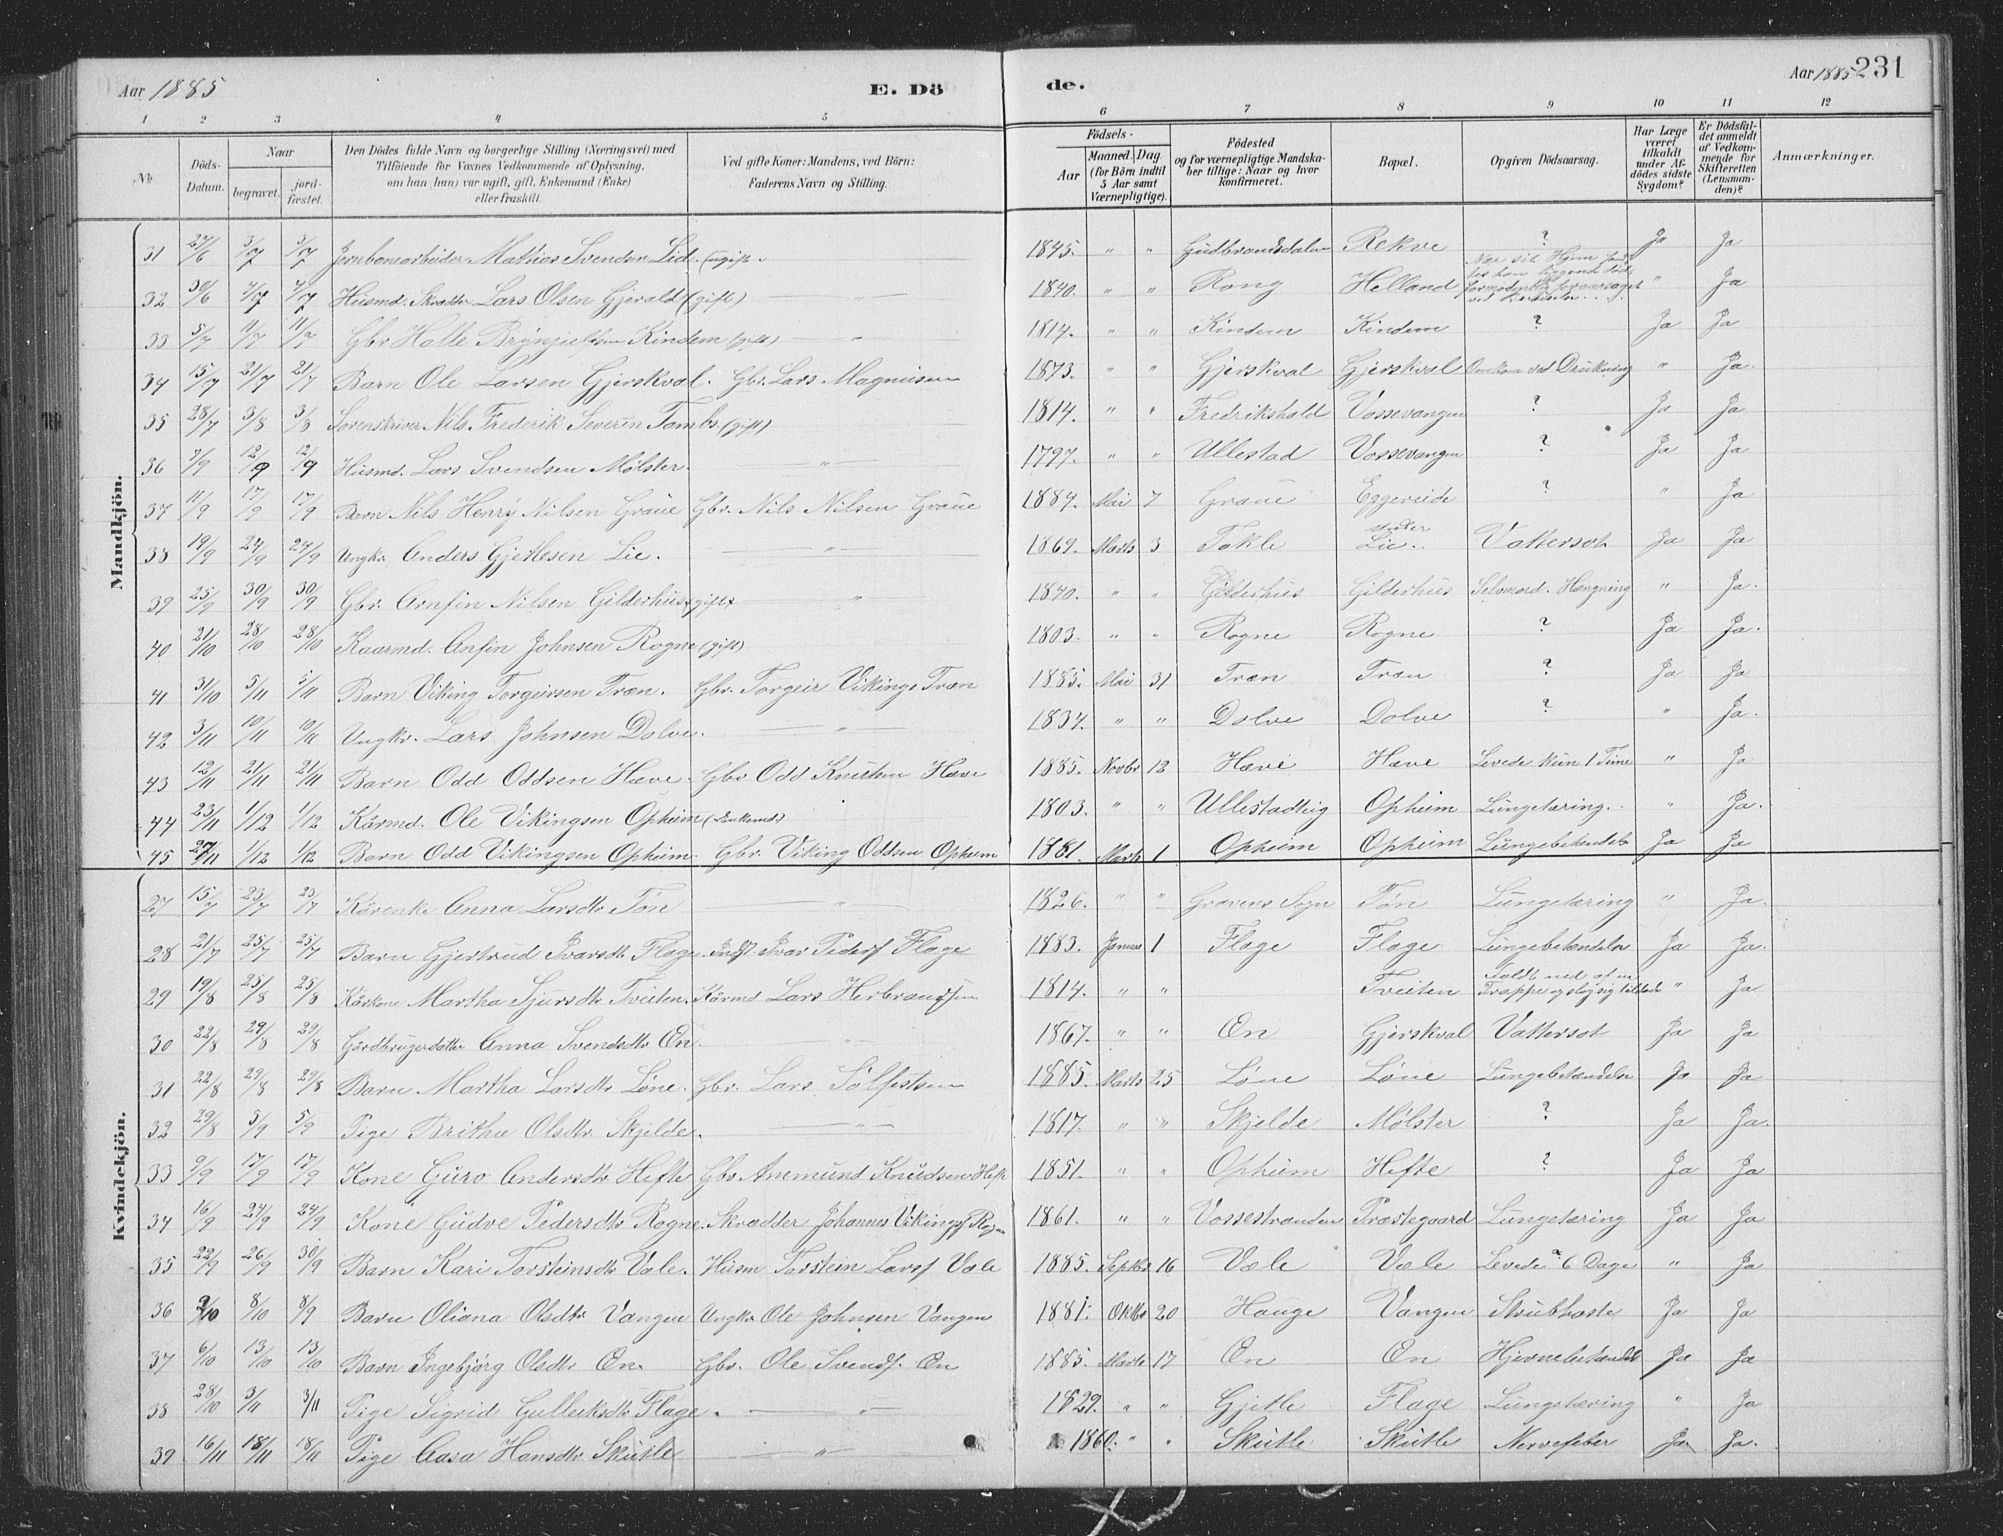 Aar 1885
E. Dö
de.
Aar 1885 231
1 2 3 4 5 6 7 8 9 10 11 12
No
Döds-Datum.
Naar
begravet.
jord-fæstet.
Den Dödes fulde Navn og borgerlige Stilling (Næringsvei) med
Tilföiende for Voxnes Vedkommende af Oplysning,
om han (hun) var ugift, gift, Enkemand (Enke)
eller fraskilt.
Ved gifte Koner: Mandens, ved Börn:
Faderens Navn og Stilling.
Födsels-
Aar
Maaned. Dag
(for Börn indtil
5 Aar samt
Værnepligtige).
Födested
og for værnepligtige Mandska-
ber tillige: Naar og hvor
konfirmeret.
Bopæl.
Opgiven Dödsaarsag.
Har Læge
været
tilkaldt
under Af-
dödes sidste
Sygdom?
Er Dödsfal-
det anmeldt
af Vedkom-
mende for
Skifteretten
(Lensman-
den)?
Anmærkninger.
Mandkjön.
31 29/6 3/7 3/7 Jernbanearbeider Mathias Svendsen Lid. (ugift. 1845. " " Gudbrandsdalen Rekve ? Ja Ja
32 30/6 4/7 4/7 Husmd. Skrædder Lars Olsen Gjerald (gift) " 1840. " " Rong Helland Nær sit Hjem liggende död " Ja
33 5/7 11/7 11/7 Gbr. Halle Brynjulfsen Kindem (gift) " 1814. " " Kindem Kindem ? Ja Ja
34 15/7 21/7 21/7 Barn Ole Larsen Gjerskval. Gbr. Lars Magnusen 1873. " " Gjerskval Gjerskval Omkom ved Drukning " Ja.
35 28/7 3/8 3/8 Sorenskriver Nils Frederik Severin Tambs. (gift) 1814. " " Fredrikshald Vossevangen ? Ja Ja
36 7/9 12/9 12/9 Husmd. Lars Svendsen Mølster. " 1797. " " Ullestad Vossevangen ? Ja Ja
37 11/9 17/9 17/9 Barn Nils Henry Nilsen Graue Gbr. Nils Nilsen Graue 1884. Mai 7 Graue Eggereide ? " Ja
38 19/9 24/9 24/9 Ungkr. Anders Gjetlesen Lie. " 1869. Marts 3 Tokle under Lie. Vattersot Ja Ja
39 25/9 30/9 30/9 Gbr. Arnfin Nilsen Gilderhus (gift) " 1840. " " Gilderhus Gilderhus Selvmord. Hængning " Ja.
40 21/10 28/10 28/10 Kaarmd. Anfin Johnsen Rogne (gift) 1803. " " Rogne Rogne ? Ja Ja.
41 31/10 5/11 5/11 Barn Viking Torgeirsen Træn. Gbr. Torgeir Vikings Træn 1885. Mai 31 Træn Træn ? Ja Ja
42 3/11 10/11 10/11 Ungkr. Lars Johnsen Dolve. " 1834. " " Dolve Dolve ? " Ja.
43 12/11 21/11 21/11 Barn Odd Oddsen Hæve. Gbr Odd Knutsen Hæve 1885. Novbr 12 Hæve Hæve Levede kun 1 Time " Ja
44 23/11 1/12 1/12 Kårmd. Ole Vikingsen Opheim (Enkemd) 1803. " " Ullestadhig Opheim Lungetæring. " Ja.
45 27/11 1/12 1/12 Barn Odd Vikingsen Opheim. Gbr. Viking Oddsen Opheim 1881. Marts 1 Opheim Opheim Lungebetændelse Ja Ja
Kvindekjön.
27 15/7 23/7 23/7 Kårenke Anna Larsdtr Tøn " 1826. " " Gravens Sogn Tøn Lungetæring " Ja.
28 21/7 25/7 25/7 Barn Gjertrud Ivarsdtr Flage. Indst. Ivar Peders. Flage 1883. Januar 1 Flage Flage Lungebetændelse Ja Ja.
29 19/8 25/8 25/8 Kårkone Martha Sjursdtr Tveiten. Kårmd Lars Herbrandsen 1814. " " Tveiten Faldt ned af en Trappe og slog sig tildøde " Ja
30 22/8 29/8 29/8 Gårdbrugerdatter Anna Svendsdtr Øn. " 1867. " " Øn Gjerskval Vattersot Ja Ja
31 22/8 29/8 29/8 Barn Martha Larsdtr Løne. Gbr. Lars Sølfestsen 1885. Marts 25 Løne Løne Lungebetændelse Ja Ja
32 29/8 5/9 5/9 Pige Britha Olsdtr Skjelde. " 1817. " " Skjelde Mølster ? Ja Ja.
33 9/9 17/9 17/9 Kone Guro Andersdtr Hefte Gbr Anemund Knudsen Hefte 1851. " " Opheim Hefte ? Ja Ja
34 16/9 24/9 24/9 Kone Gudve Pedersdtr Rogne. Skrædder Johannes Vikings. Rogne 1861. " " Vossestranden Præstegaard Lungetæring Ja Ja
35 22/9 26/9 30/9 Barn Kari Torsteinsdtr Væle. Husm Torstein Lars. Væle 1885. Septbr 16 Væle Væle Levede 6 Dage " Ja
36 2/10 8/10 8/9 Barn Oliana Olsdtr Vangen Ungkr. Ole Johnsen Vangen 1881. Oktbr 20 Hauge Vangen Strubhoste Ja Ja
37 6/10 13/10 13/10 Barn Ingebjørg Olsdtr Øn. Gbr. Ole Svends. Øn 1885. Marts 17 Øn Øn Hjernebetændelse Ja Ja
38 28/10 3/11 3/11 Pige Sigrid Gulleiksdtr Flage. " 1829. " " Gjetle Flage Lungetæring " Ja
39 16/11 18/11 18/11 Pige Aasa Hansdtr Skutle " 1860. " " Skutle Skutle Nervefeber Ja Ja.